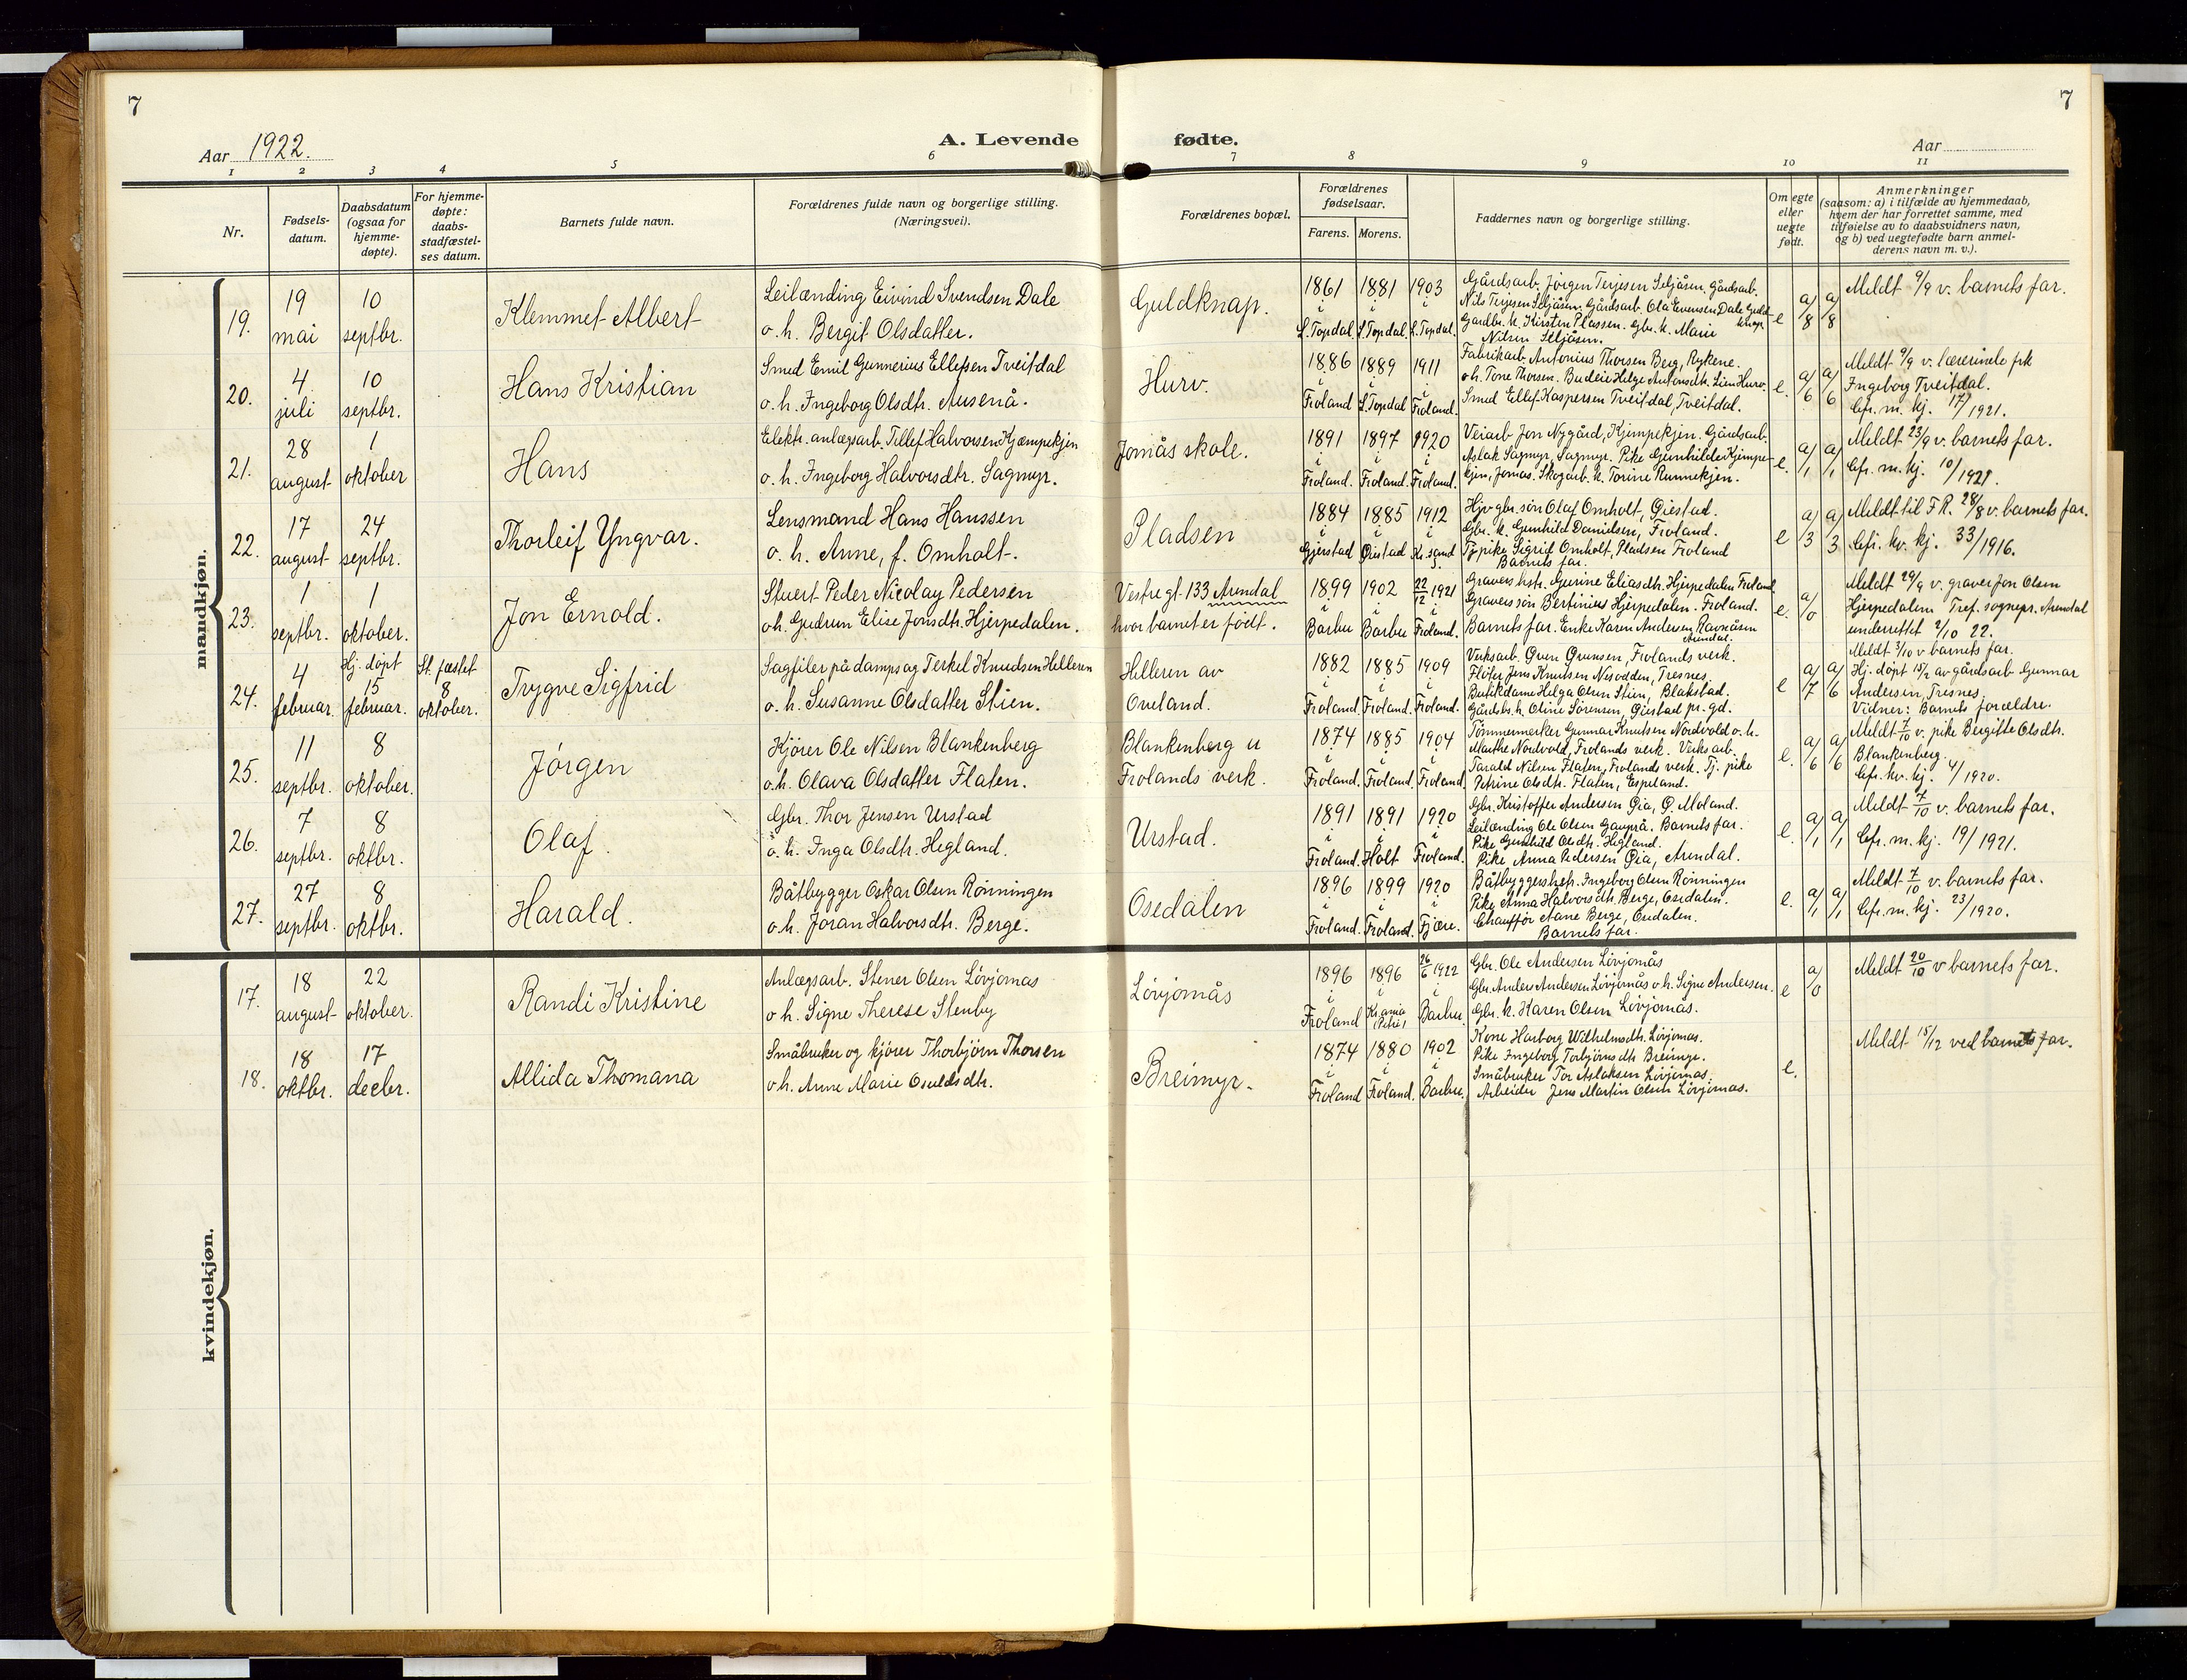 7
7
Aar 1922.
A. Levende fødte.
Aar
1 2 3 4 5 6 7 8 9 10 11
Nr.
Fødsels-
datum.
Daabsdatum
(ogsaa for
hjemme-
døpte).
For hjemme-
døpte:
daabs-
stadfæstel-
ses datum.
Barnets fulde navn.
Forældrenes fulde navn og borgerlige stilling.
(Næringsvei).
Forældrenes bopæl.
Forældrenes
fødselsaar.
Farens. Morens.
Faddernes navn og borgerlige stilling.
Om egte
eller
uegte
født.
Anmerkninger
(saasom: a) i tilfælde av hjemmedaab,
hvem der har forrettet samme, med
tilføielse av to daabsvidners navn,
og b) ved uegtefødte barn anmel-
derens navn m. v.).
mandkjøn.
19.
19
mai
10
septbr.
Klemmet Albert
Leilænding Eivind Svendsen Dale
o. h. Bergit Olsdatter.
Guldknap.
1861 1881 1903
i i i
S. Topdal. S. Topdal. S. Topdal.
Gårdsarb. Jörgen Terjesen Seljåsen. Gårdsarb.
Nils Terjesen Seljåsen. Gårdsarb. Ola Evensen Dale Guld-
knap.
Gardbr. k. Kirsten Plassen. Gbr. k. Marie
Nilsen Seljåsen.
e
a/8 a/8
Meldt 9/9 v. barnets far.
20.
4
juli
10
septbr.
Hans Kristian
Smed Emil Gunnerius Ellefsen Tveitdal
o. h. Ingeborg Olsdtr. Ausenå.
Hurv.
1886 1889 1911
i i i
Froland S. Topdal Froland.
Fabrikarb. Antonius Thorsen Berg, Rykene.
o h. Tone Thorsen. Budeie Helge Antonsdtr. Lien Hurv.
Smed Ellef Kaspersen Tveitdal, Tveitdal.
e.
a/6 a/6
Meldt 9/9 v. lærerinde frk
Ingeborg Tveitdal.
Cfr. m. kj. 17/1921.
21.
28
august
1
oktober
Hans
Elektr. anlægsarb. Tellef Halvorsen Kjæmpekjen
o. h. Ingeborg Halvorsdtr. Sagmyr.
Jomås skole.
1891 1897 1920
i i i
Froland. Froland. Froland.
Veiarb. Jon Nygård, Kjempekjen. Gårdsarb.
Aslak Sagmyr, Sagmyr. Pike Gunhilde Kjempe-
kjen, Jomas. Skogarb. k. Torine Runnekjen.
e.
a/1 a/1
Meldt 23/9 v. barnets far.
Cfr. m. kj. 10/1921.
22.
17
august
24
septbr.
Thorleif Yngvar.
Lensmand Hans Hanssen
o. h. Anne, f. Omholt.
Pladsen
1884 1885 1912
i i i
Gjerstad Øiestad Kr.sand
S.
Hjv gbr. søn Olaf Omholt, Øiestad.
Gbr. k. Gunhild Danielsen, Froland.
Tj. pike Sigrid Omholt, Pladsen Froland
Barnets far.
e
a/3 a/3
Meldt til F R. 28/8 v. barnets far.
Cfr. kv. kj. 33/1916.
23.
1
septbr.
1
oktober.
Jon Ernold.
Stuert Peder Nicolay Pedersen
o h. Gudrun Elise Jonsdtr. Hjerpedalen.
Vestregt. 133 Arendal
hvor barnet er født.
1899 1902 22/12 1921
i i i
Barbu Barbu Froland.
Gravers hstr. Gurine Eliasdtr. Hjerpedalen Froland
Gravers søn Bertinius Hjerpedalen. Froland.
Barnets far. Enke Karen Andersen Ravnåsen
Arendal.
e.
a/0
Meldt 29/9 v. graver Jon Olsen
Hjerpedalen Tref. sognepr. Arendal
underrettet 2/10 22.
24.
4
februar.
Hj. døpt
15
februar.
St. fæstet
8
oktober.
Trygve Sigfrid
Sagfiler på dampsag Terkel Knudsen Helleren
o. h. Susanne Olsdatter Stien.
Helleren av
Oveland.
1882 1885 1909
i i i
Froland. Froland. Froland.
Verksarb. Gven Grunsen, Frolands verk.
Fløter Jens Knutsen Nesodden, Tresnes.
Butikdame Helga Olsen Stien, Blakstad.
Gårdsbr. h. Oline Sørensen, Øiestad pr. gd.
e
a/7 a/6
Meldt 3/10 v barnets far.
Hj. døpt 15/2 av gårdsarb. Gunnar
Andersen, Tresnes.
Vidner: Barnets forældre.
25.
11
septbr.
8
oktober.
Jörgen
Kjører Ole Nilsen Blankenberg
o. h. Olava Olsdatter Flaten.
Blankenberg u
Frolands verk.
1874 1885 1904
i i i
Froland. Froland. Froland.
Tømmermerker Gunnar Knutsen Nordvold o. h.
Marthe Nordvold, Frolands verk. Verks arb.
Tarald Nilsen Flaten, Frolands verk. Tj. pike
Petrine Olsdtr. Flaten, Espeland.
e.
a/6 a/6
Meldt 7/10 v. pike Bergitte Olsdtr.
Blankenberg.
Cfr. kv. kj. 4/1920.
26.
7
septbr.
8
oktbr.
Olaf.
Gbr. Thor Jensen Urstad
o. h. Inga Olsdtr. Hegland.
Urstad.
1891 1891 1920
i i i
Froland Holt Froland.
Gbr. Kristoffer Andersen Gia, Ø. Moland.
Leilænding Ole Olsen Gauprå. Barnets far.
Pike Gunhild Olsdtr. Hegland.
Pike Anna Pedersen Gia, Arendal.
e.
a/1 a/1
Meldt 7/10 v. barnets far.
Cfr. m. kj. 19/1921.
27.
27
septbr.
8
oktbr.
Harald.
Båtbygger Oskar Olsen Rönningen
o. h. Joran Halvorsdtr. Berge.
Osedalen
1896 1899 1920
i i i
Froland. Froland. Fjære.
Båtbyggershstr. Ingeborg Olsen Rönningen
Pike Anna Halvorsdtr. Berge, Osedalen.
Chauffør Aane Berge, Osedalen.
Barnets far.
e.
a/1 a/1
Meldt 7/10 v. barnets far.
Cfr. m. kj. 23/1920.
kvindekjøn.
17.
18
august
22
oktober.
Randi Kristine
Anlægsarb. Stener Olsen Lövjomas
o h. Signe Therese Stenby
Lövjomås
1896 1896 26/6 1922
i i i
Froland Kr.ania
(Petri) Barbu.
Gbr. Ole Andersen Lövjomås
Gbr. Anders Andersen Lövjomås o h. Signe Andersen.
Gbr. k. Karen Olsen Lövjomas.
e
a/0
Meldt 20/10 v barnets far.
18.
18
oktbr.
17
decbr.
Allida Thomana
Småbruker og kjører Thorbjörn Thorsen
o h. Anne Marie Osuldsdtr.
Breimyr.
1874 1880 1902
i i i
Froland Froland. Barbu.
Kone Hanborg Wilhelmsdtr. Lövjomas.
Pike Ingeborg Torbjörnsdtr Breimyr.
Småbruker Tor Aslaksen Lövjomas.
Arbeider Jens Martin Olsen Lövjomas.
e.
Meldt 15/12 ved barnets far.